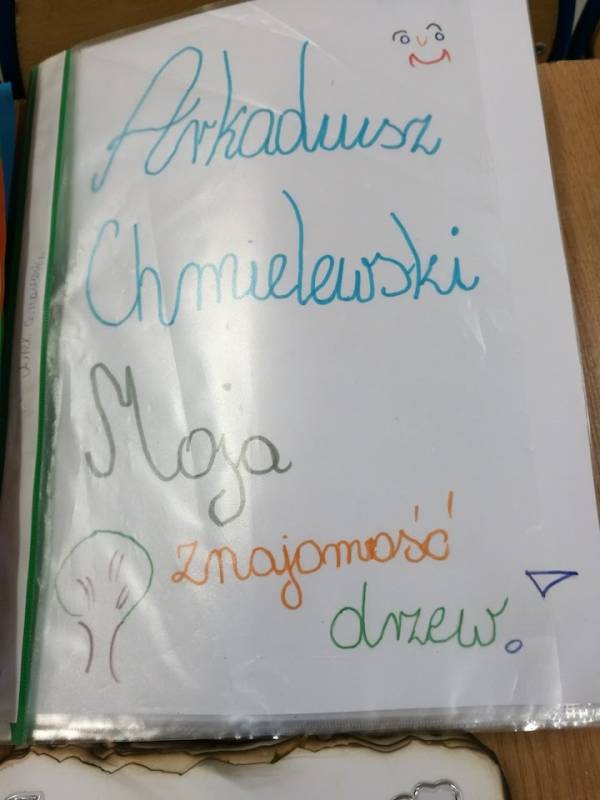 Arkadiusz
Chmielewski
Moja
znajomość
drzew.